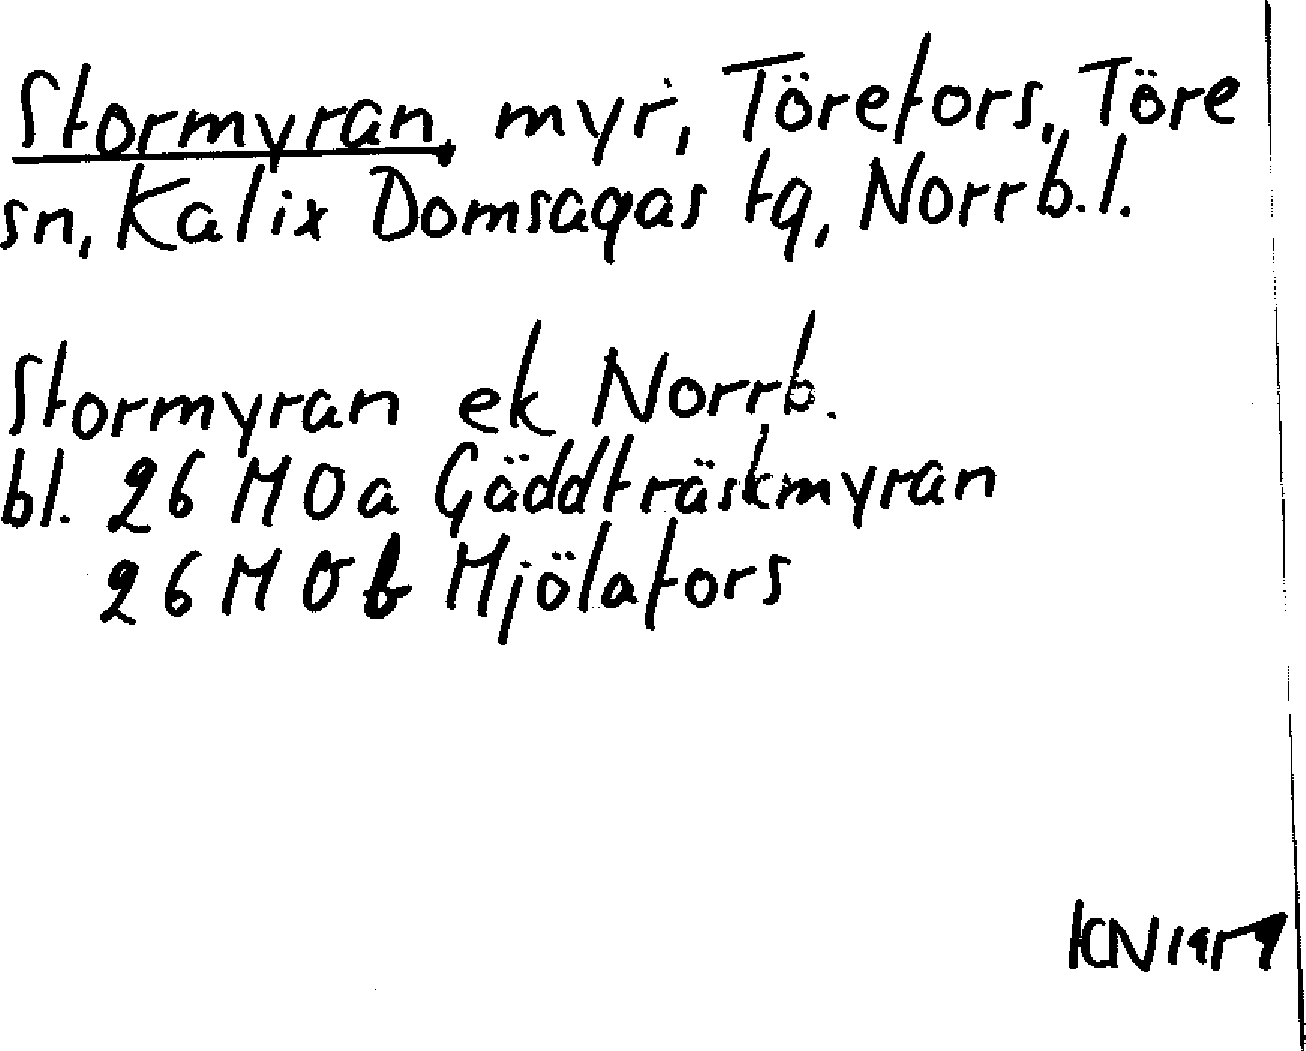 Stormyran, myr, Törefors, Töre
sn, Kalix Domsagas tg, Norrb.l.
Stormyran ek Norrb.
bl. 26 M 0a Gäddträskmyran
26 M 0b Mjölafors
KN 1959